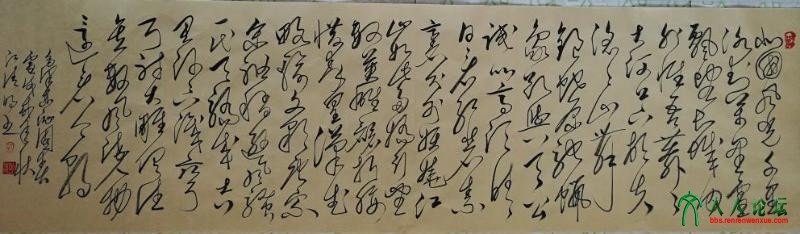 北国风光千里
冰封万里雪
飘望长城内
外惟余莽莽
大河上下顿失
滔滔山舞
银蛇原驰蜡
象欲与天公
试比高须晴
日看红装素
裹分外妖娆江
山如此多娇引无
数英雄竞折腰
惜秦皇汉武
略输文采唐宗
宋祖稍逊风骚
一代天骄成吉
思汗只识弯弓
射大雕俱往
矣数风流人物
还看今朝
毛泽东沁园春
雪
人人论坛
bbs.renrenwenxue.com